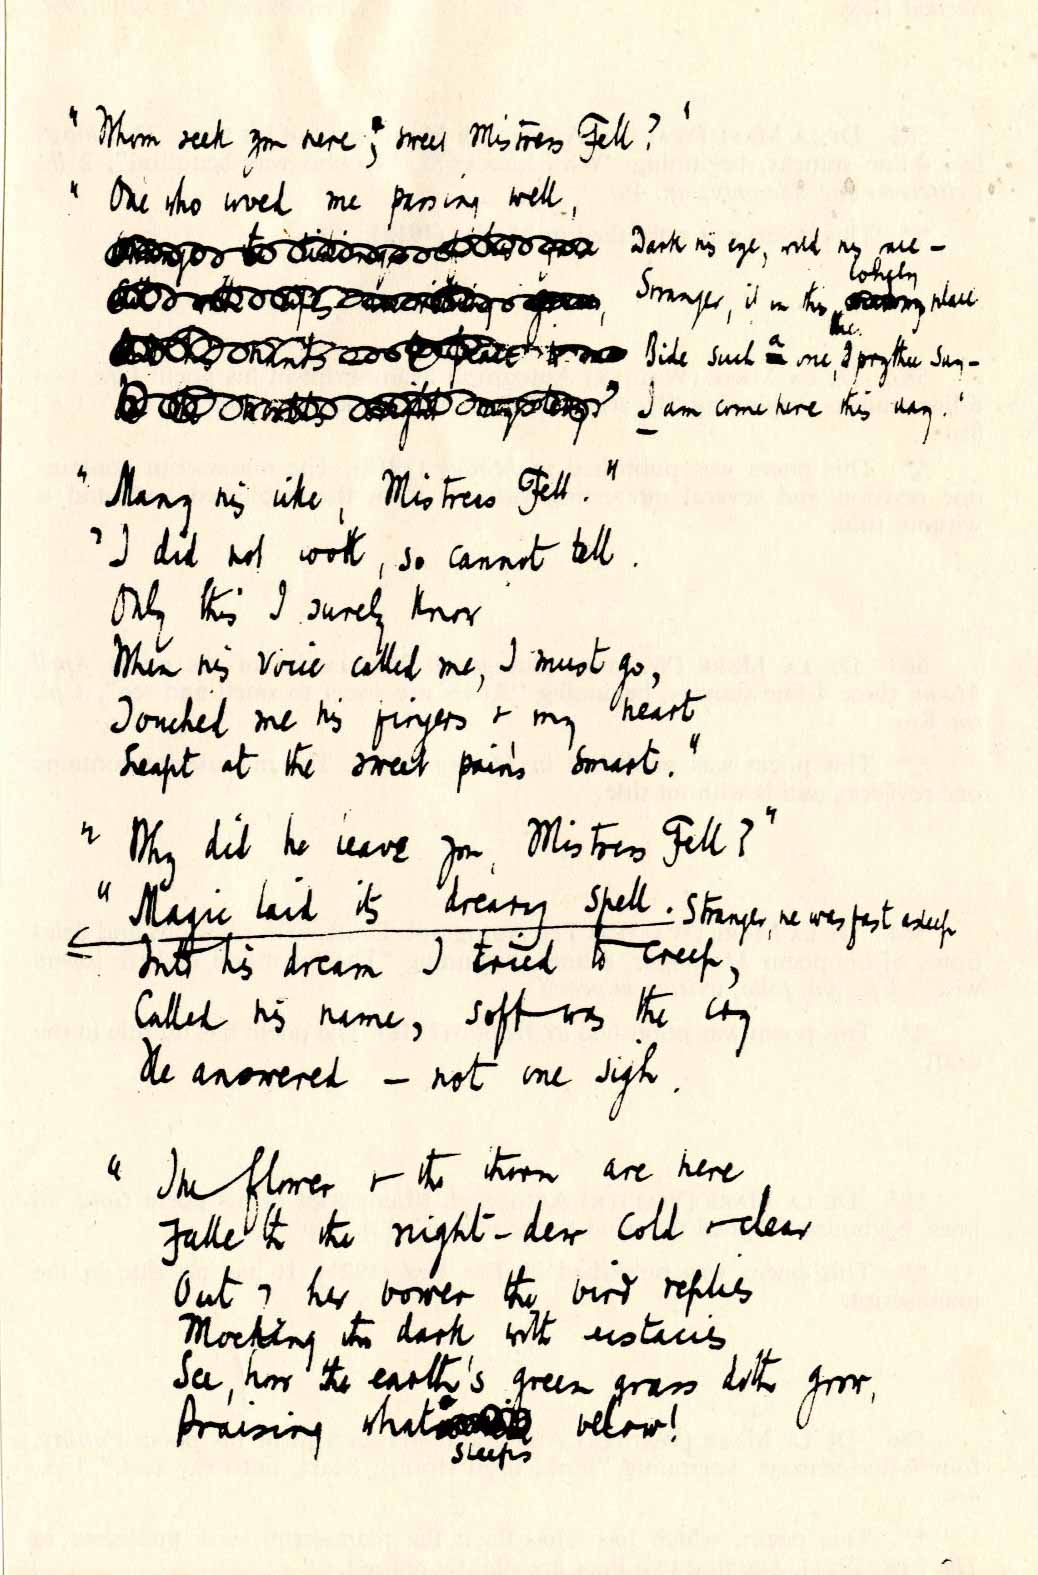 "Whom seek you here, sweet Mistress Fell?"
"One who loved me passing well,
Dark his eye, wild his face –
Stranger, if in this lonely place
Bide such a one, the, I prythee say –
I am come here this day."
"Many his like, Mistress Fell."
"I did not look, so cannot tell.
Only this I surely know
When his voice called me, I must go,
Touched me his fingers & my heart
Leapt at the sweet pain's smart."
"Why did he leave you, Mistress Fell?"
"Magic laid its dreary spell. Stranger, he was fast asleep
Into his dream I tried to creep,
Called his name, soft was the cry
He answered – not one sigh.
"The flower & the thorn are here
Falleth the night-dew cold & clear
Out of her bower the bird replies
Mocking the dark with ecstacies
See, how the earth's green grass doth grow,
Praising what
sleeps
below!